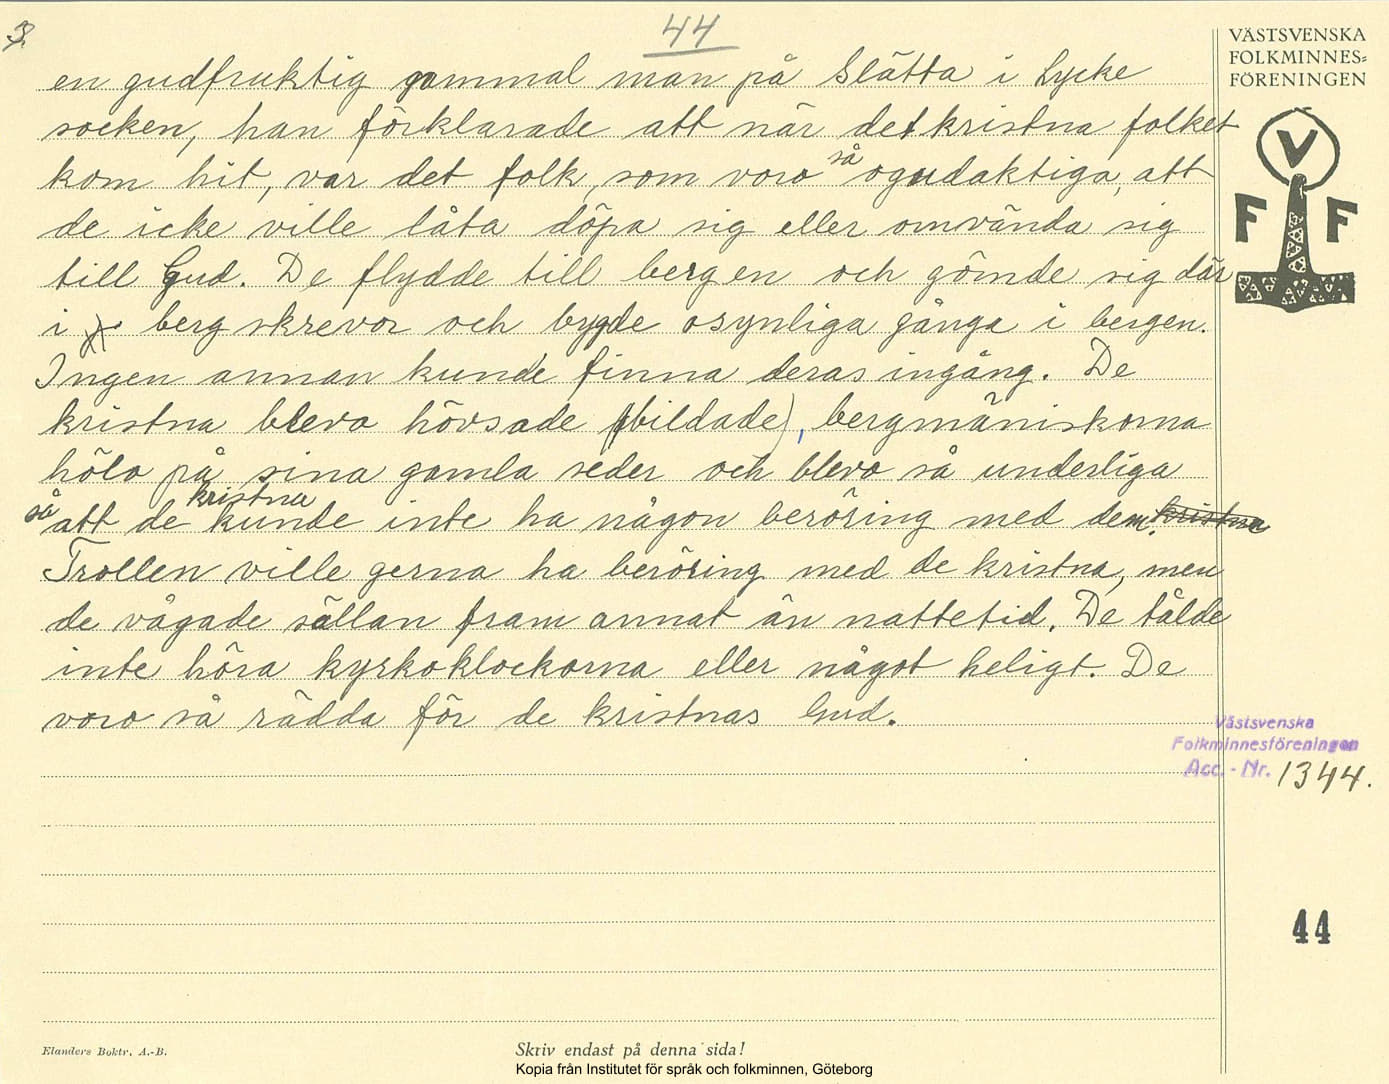 3.
44
en gudfruktig gammal man på Slätta i Lycke
socken, han förklarade att när det kristna folket
kom hit, var det folk, som voro så ogudaktiga, att
de icke ville låta döpa sig eller omvända sig
till Gud. De flydde till bergen och gömde sig där
i bergskrevor och bygde osynliga gånga i bergen.
Ingen annan kunde finna deras ingång. De
kristna blevo hövsade (bildade), bergmäniskorna
hölo på sina gamla seder och blevo så underliga
så att de kristna kunde inte ha någon beröring med dem. kristna
Trollen ville gerna ha beröring med de kristna, men
de vågade sällan fram annat än nattetid. De tålde
inte höra kyrkoklockorna eller något heligt. De
voro så rädda för de kristnas Gud.
VÄSTSVENSKA
FOLKMINNES=
FÖRENINGEN
V
F F
Västsvenska
Folkminnesföreningen
Acc. - Nr. 1344.
44
Elanders Boktr. A.-B.
Skriv endast på denna sida!
Kopia från Institutet för språk och folkminnen, Göteborg